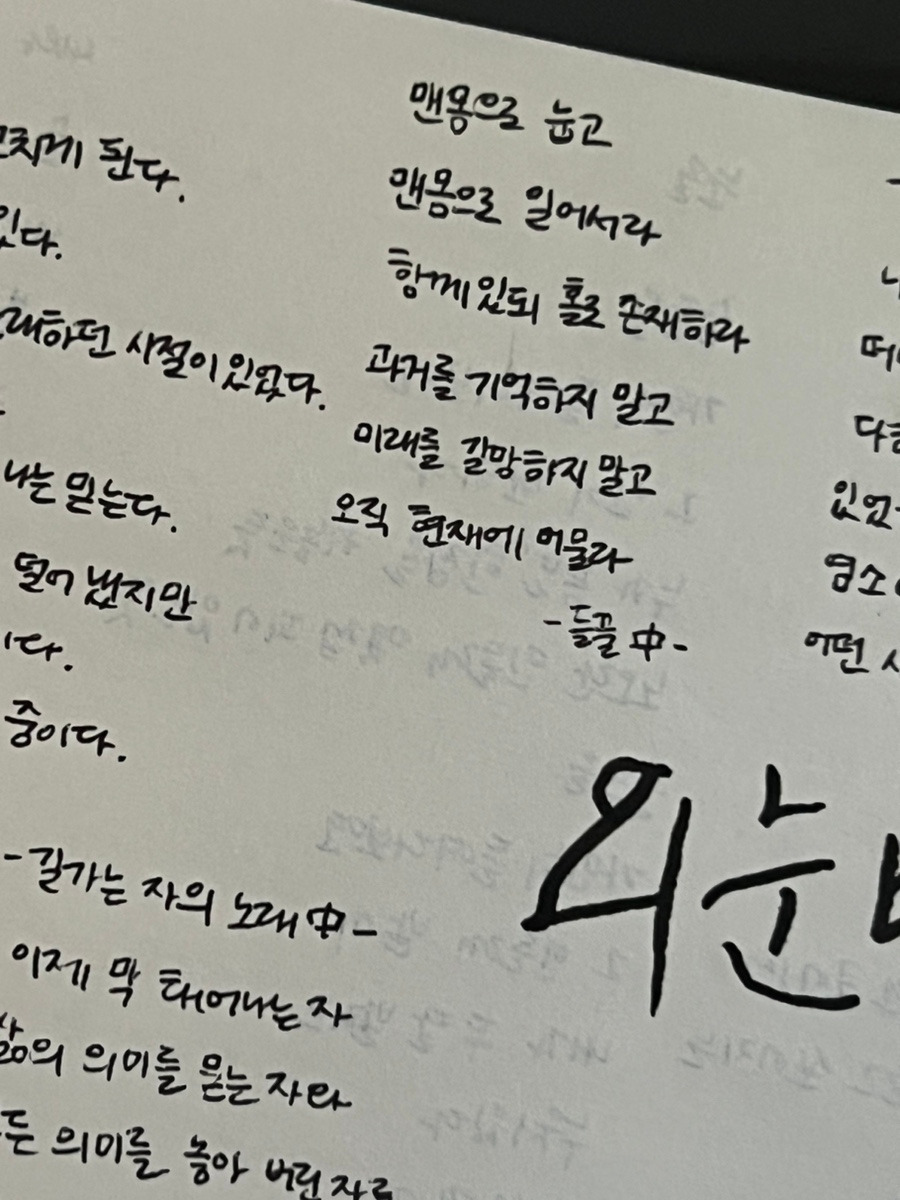 된다.
있다.
시절이 있었다.
나는 믿는다.
덜어 냈지만
이다.
중이다.
- 길가는 자의 노래 中 -
이제 막 태어나는 자
삶의 의미를 묻는 자와
의미를 놓아 버린 자를
맨몸으로 눕고
맨몸으로 일어서라
함께 있되 홀로 존재하라
과거를 기억하지 말고
미래를 갈망하지 말고
오직 현재에 머물라
- 들풀 中 -
외눈
염소
어떤